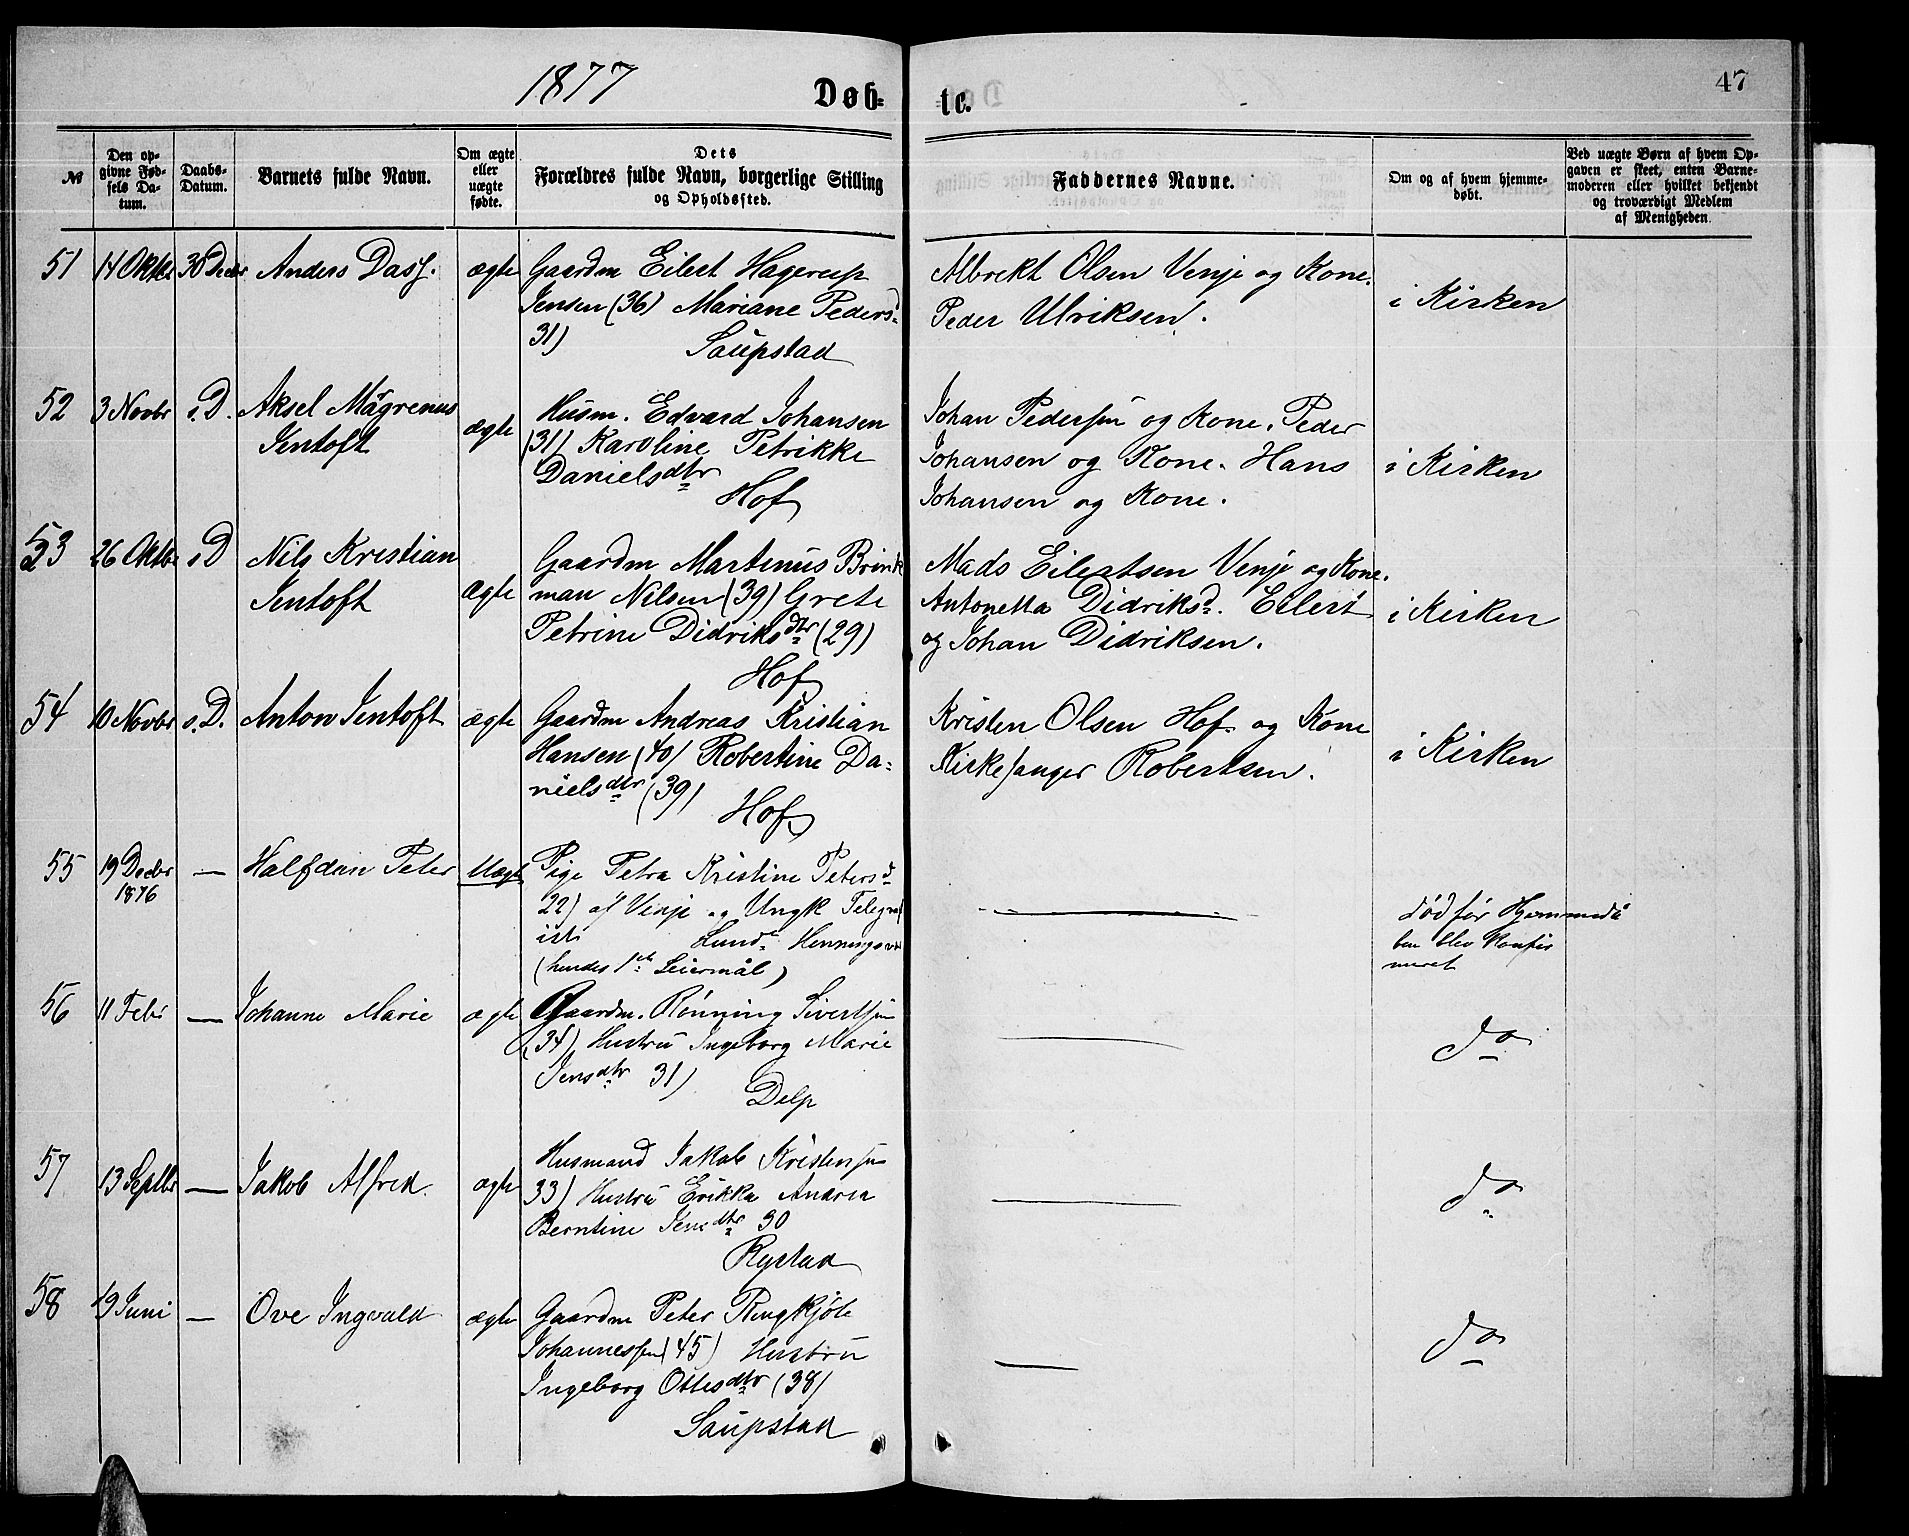 1877
Døb=
te.
47
№
Den op-
givne Fød-
sels Da-
tum.
Daabs-
Datum.
Barnets fulde Navn.
Om ægte
eller
uægte
fødte.
Dets
Forældres fulde Navn, borgerlige Stilling
og Opholdssted.
Faddernes Navne.
Om og af hvem hjemme-
døbt.
Ved uægte Børn af hvem Op-
gaven er skeet, enten Barne-
moderen eller hvilket bekjendt
og troværdigt Medlem
af Menigheden.
51
14 Oktbr
30 Decbr
Anders Dass.
ægte
Gaardm Eilert Hagerup
Jensen (36) Mariane Pedersd
31)
Saupstad
Albrekt Olsen Venje og Kone.
Peder Ulriksen.
i Kirken
52
3 Novbr
s. D.
Aksel Magrenus
Jentoft
ægte
Husm. Edvard Johansen
(31) Karoline Petrikke
Danielsdtr
Hof
Johan Pedersen og Kone. Peder
Johansen og Kone. Hans
Johansen og Kone.
i Kirken
53
26 Oktbr
s D
Nils Kristian
Jentoft
ægte
Gaardm Martinus Brink
man Nilsen (39) Grete
Petrine Didriksdtr (29)
Hof
Mads Eilertsen Venje og Kone.
Antonetta Didriksd. Eilert
og Johan Didriksen.
i Kirken
54
10 Novbr
s. D.
Anton Jentoft
ægte
Gaardm Andreas Kristian
Hansen (40) Robertine Da-
nielsdtr (39)
Hof
Kristen Olsen Hof og Kone
Kirkesanger Robertsen.
i Kirken
55
19 Decbr
1876
—
Halfdan Peter
Uægte
Pige Petra Kristine Petersd
22) af Vinje og Ungk Telegraf
ist Lund Henningsvær
(hendes 1ste Leiermål)
død før Hjemmedå
ben blev konfir
meret
56
11 Febr
—
Johanne Marie
ægte
Gaardm. Rønning Sivertsen
(34) Hustru Ingeborg Marie
Jensdtr 31)
Delp
do
57
13 Septbr
—
Jakob Alfred.
ægte
Husmand Jakob Kristensen
33) Hustru Erikka Andrea
Berntine Jensdtr 30
Rystad
do
58
19 Juni
—
Ove Ingvald
ægte
Gaardm Peter Ringkjøb
Johannessen (45) Hustru
Ingeborg Ottesdtr (38)
Saupstad
do